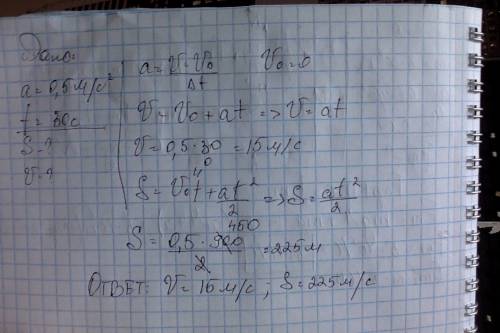 Дано:
a = 0,5 м/с²
t = 30с
S - ?
V - ?
a = V - V₀ / Δt    V₀ = 0
V = V₀ + at => V = at
V = 0,5 · 30 = 15 м/с
0
S = V₀t + at²/2 => S = at²/2
450
S = 0,5 · 900 / 2 = 225 м
Ответ: V = 15 м/с ; S = 225 м/с